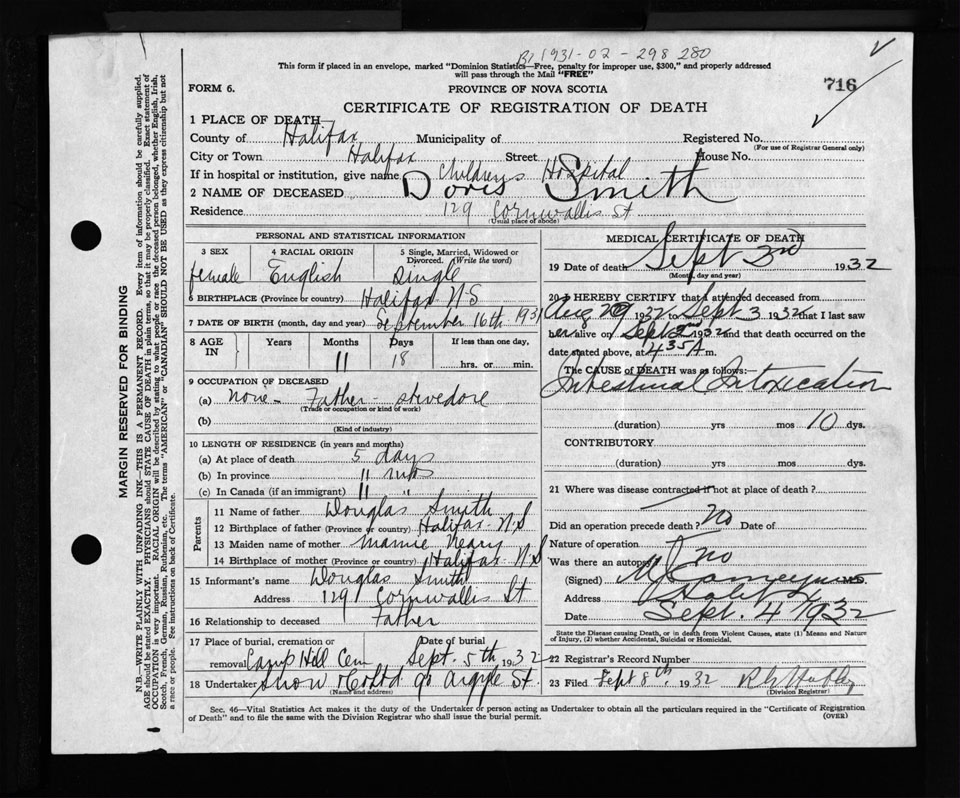 B, 1931-02-298 280
This form if placed in an envelope, marked "Dominion Statistics—Free, penalty for improper use, $300," and properly addressed
will pass through the Mail "FREE"
FORM 6.
PROVINCE OF NOVA SCOTIA
716
CERTIFICATE OF REGISTRATION OF DEATH
1 PLACE OF DEATH
County of Halifax Municipality of Registered No.
(For use of Registrar General only)
City or Town Halifax Street House No.
If in hospital or institution, give name Childrens Hospital
2 NAME OF DECEASED Doris Smith
Residence 129 Cornwallis St
(Usual place of abode)
PERSONAL AND STATISTICAL INFORMATION
3 SEX 4 RACIAL ORIGIN 5 Single, Married, Widowed or Divorced. (Write the word)
female English Single
6 BIRTHPLACE (Province or country) Halifax N.S
7 DATE OF BIRTH (month, day and year) September 16th 1931
8 AGE IN Years Months Days If less than one day,
11 18 hrs. or min.
9 OCCUPATION OF DECEASED
(a) None - Father - stevedore
(Trade or occupation or kind of work)
(b)
(Kind of industry)
10 LENGTH OF RESIDENCE (in years and months)
(a) At place of death 5 days
(b) In province 11 mos
(c) In Canada (if an immigrant) 11 "
Parents
11 Name of father Douglas Smith
12 Birthplace of father (Province or country) Halifax N.S
13 Maiden name of mother Mamie Neary
14 Birthplace of mother (Province or country) Halifax N.S
15 Informant's name Douglas Smith
Address 129 Cornwallis St
16 Relationship to deceased Father
17 Place of burial, cremation or Date of burial
removal Camp Hill Cem Sept. 5th, 1932
18 Undertaker Snow & Co Ltd 90 Argyle St.
(Name and address)
MEDICAL CERTIFICATE OF DEATH
19 Date of death Sept 3rd 1932
(Month, day and year)
20 I HEREBY CERTIFY that I attended deceased from
Aug 29 1932 to Sept 3 1932 that I last saw
her alive on Sept 2nd 1932 and that death occurred on the
date stated above, at 4 35 A m.
The CAUSE of DEATH was as follows:—
Intestinal Intoxication
(duration) yrs mos 10 dys.
CONTRIBUTORY
(duration) yrs mos dys.
21 Where was disease contracted if not at place of death?
Did an operation precede death? No Date of
Nature of operation
Was there an autopsy? no
(Signed) M.D.
Address Halifax
Date Sept. 4 1932
State the Disease causing Death, or in death from Violent Causes, state (1) Means and Nature
of Injury, (2) whether Accidental, Suicidal or Homicidal.
22 Registrar's Record Number
23 Filed Sept 8th 1932
(Division Registrar)
Sec. 46—Vital Statistics Act makes it the duty of the Undertaker or person acting as Undertaker to obtain all the particulars required in the "Certificate of Registration
of Death" and to file the same with the Division Registrar who shall issue the burial permit.
(OVER)
MARGIN RESERVED FOR BINDING
N.B.—WRITE PLAINLY WITH UNFADING INK—THIS IS A PERMANENT RECORD. Every item of information should be carefully supplied.
AGE should be stated EXACTLY. PHYSICIANS should STATE CAUSE OF DEATH in plain terms, so that it may be properly classified. Exact statement of
OCCUPATION is very important. RACIAL ORIGIN will be described by stating to what people or race the deceased person belonged, whether English, Irish,
Scotch, French, German, Russian, Ruthenian, etc. The terms "AMERICAN" or "CANADIAN" SHOULD NOT BE USED as they express citizenship but not
a race or people. See instructions on back of Certificate.